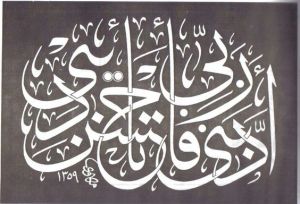 أدّبني ربّي فأحسن تأديبي
١٣٥٩